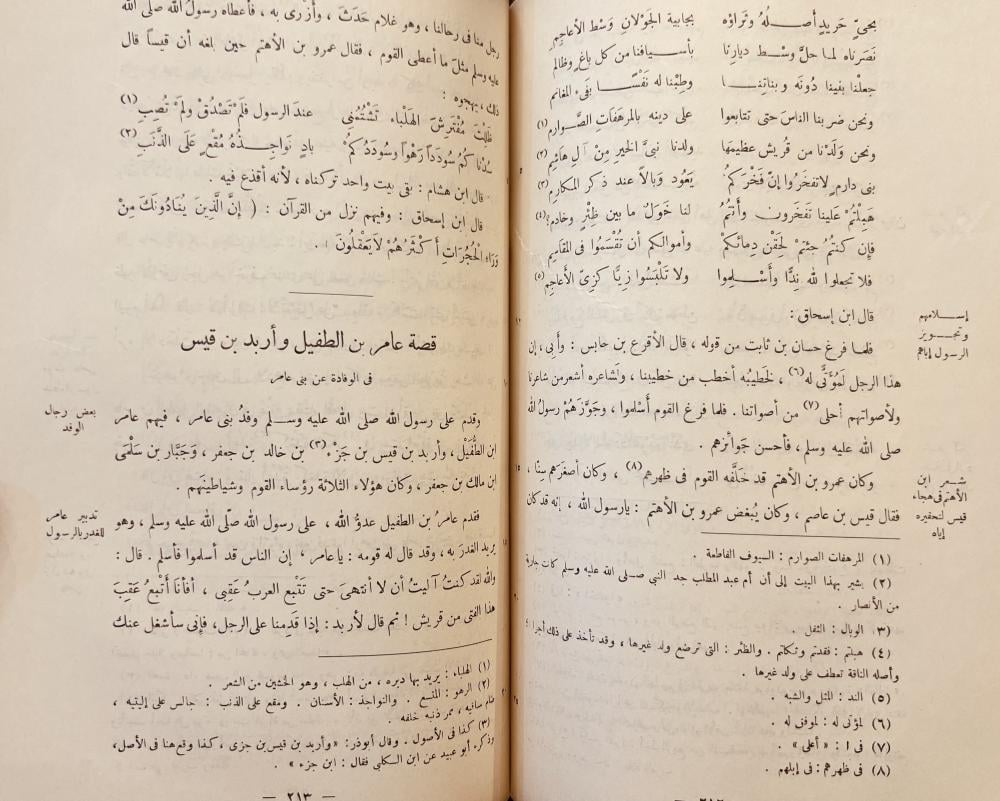 بحيّ حَريدٍ أصلُهُ وثَراؤه بجابية الجَوْلان وَسْط الأعاجِمِ
نَصَرناه لما حلَّ وسْط ديارِنا بأسيافنا من كلّ باغٍ وظالم
جعلْنا بنينا دُونَه وبناتِنا وطِبْنا له نَفْسًا بفَىء المغانم
ونحن ضربنا الناسَ حتى تتابعوا على دينه بالمرهَفاتِ الصَّوارِم(١)
ونحن وَلَدْنا من قُريش عظيمَها ولدنا نبيَّ الخيرِ مِنْ آلِ هاشمِ(٢)
بنى دارم لاتفخَرُوا إنّ فَخْرَكمُ يَعُود وَبالاً عند ذكر المكارِمِ(٣)
هَبِلْتُمْ عَلَينا تَفخَرون وأنتُمُ لنا خَوَلٌ ما بين ظِئْرٍ وخادم؟(٤)
فإن كنتُمُ جئتمْ لِحَقْن دِمائكمْ وأموالكم أن تُقْسَمُوا فى المقاسِمِ
فلا تجعلوا لله نِدًّا وأَسْلِموا ولا تَلْبَسُوا زِيًّا كزىّ الأعاجِم(٥)
إسلامهم
وتجويز
الرسول إياهم
قال ابن إسحاق :
فلما فرغ حسان بن ثابت من قوله ، قال الأقرع بن حابس : وأبى، إن
هذا الرجل لَمُؤَتًّى له(٦) ، لخَطيبُه أخطب من خطيبنا ، ولَشاعره أشعر من شاعرنا
ولأصواتهم أحلى(٧) من أصواتنا . فلما فرغ القوم أَسْلموا ، وجَوَّزَهُمْ رسولُ الله
صلى الله عليه وسلم ، فأحسن جوائزَهم .
شعر ابن
الأهتم فى هجاء
قيس لتحقيره
إياه
وكان عمرو بن الأهتم قد خَلَّفه القوم فى ظهرهم(٨) ، وكان أصغرَهم سِنًا ،
فقال قيس بن عاصم ، وكان يُبغض عمرو بن الأهتم : يارسول الله ، إنه قد كان
(١) المرهفات الصوارم : السيوف القاطعة .
(٢) يشير بهذا البيت إلى أن أم عبد المطلب جد النبي صلى الله عليه وسلم كانت جارية
من الأنصار .
(٣) الوبال : الثقل .
(٤) هبلتم : فقدتم وثكلتم . والظئر : التى ترضع ولد غيرها ، وقد تأخذ على ذلك أجرا ؛
وأصله الناقة تعطف على ولد غيرها .
(٥) الند : المثل والشبه .
(٦) لمؤتى له : لموفق له .
(٧) فى ا : « أعلى » .
(٨) فى ظهرهم : فى إبلهم .
رجل منا فى رحالنا ، وهو غلام حَدَث ، وأزرى به ، فأعطاه رسولُ الله صلى الله
عليه وسلم مثلَ ما أعطى القوم ، فقال عمرو بن الأهتم حين بلغه أن قيساً قال
ذلك ، يهجوه :
ظَلِلْتَ مُفْتَرِشَ الهَلْباء تَشْتُمُنِى عندَ الرسول فَلَمْ تَصْدُقْ ولَمْ تُصِبِ(١)
سُدْنا كُمُ سُودَدًا رَهْوًا وسُودَدُكمْ بادٍ نَواجِذُهُ مُقْعٍ عَلَى الذَّنَبِ(٢)
قال ابن هشام : بقى بيت واحد تركناه ، لأنه أقذع فيه .
قال ابن إسحاق : وفيهم نزل من القرآن : ( إِنَّ الَّذِينَ يُنَادُونَكَ مِنْ
وَرَاءِ الْحُجُرَاتِ أَكْثَرُهُمْ لاَيَعْقِلُونَ ) .
قصة عامر بن الطفيل وأربد بن قيس
فى الوفادة عن بنى عامر
بعض رجال
الوفد
وقدم على رسول الله صلى الله عليه وسلم وفدُ بنى عامر ، فيهم عامر
ابن الطُّفَيْل ، وأربد بن قيس بن جَزْء(٣) بن خالد بن جعفر ، وجَبَّار بن سَلْمَى
ابن مالك بن جعفر ، وكان هؤلاء الثلاثة رؤساء القوم وشياطينَهم .
تدبير عامر
للغدر بالرسول
فقدم عامرُ بن الطفيل عدوُّ الله ، على رسول الله صلّى الله عليه وسلم ، وهو
يريد الغدرَ به ، وقد قال له قومه : ياعامر ، إن الناس قد أسلموا فأسلم . قال :
والله لقد كنتُ آليتُ أن لا أنتهىَ حتى تَتْبع العربُ عَقِبى ، أفأنَا أَتْبعُ عَقِبَ
هذا الفتى من قريش ! ثم قال لأربد : إذا قَدِمنا على الرجل، فإنى سأشغل عنك
(١) الهلباء : يريد بها دبره ، من الهلب ، وهو الخشين من الشعر .
(٢) الرهو : المتسع . والنواجذ : الأسنان . ومقع على الذنب : جالس على إليتيه ،
ضام ساقيه ، ممر ذنبه خلفه .
(٣) كذا فى الأصول . وقال أبوذر : «وأربد بن قيس بن جزى ، كذا وقع هنا فى الأصل،
وذكره أبو عبيد عن ابن الكلبى فقال : ابن جزء » .
— ٢١٣ —